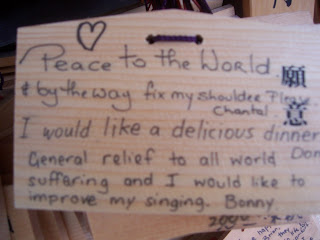 Peace to the World
& by the way fix my shoulder Please
Chantal
I would like a delicious dinner
Don
General relief to all world
suffering and I would like to
improve my singing. Bonny.
願
意